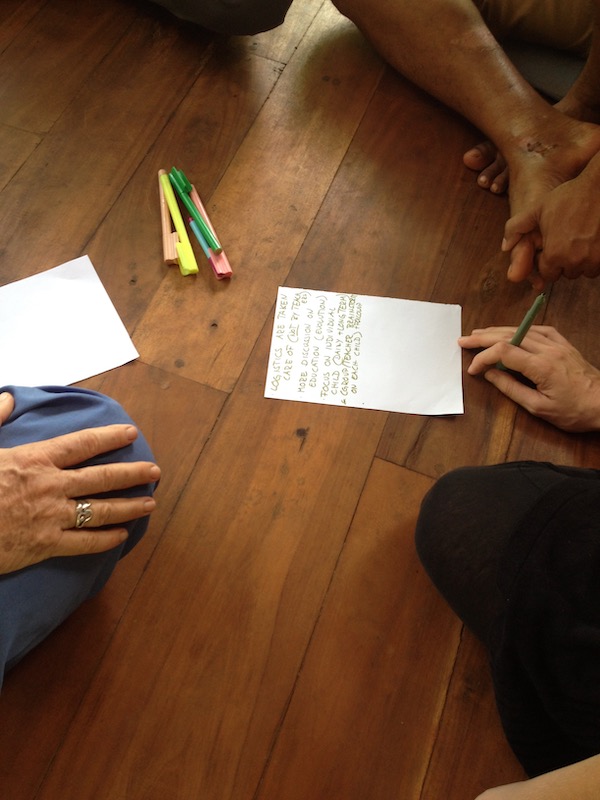 LOGISTICS ARE TAKEN
CARE OF (BY TEAM)
MORE DISCUSSION ON
EDUCATION (EVOLUTION)
FOCUS ON INDIVIDUAL
CHILD (DAILY + LONG TERM)
& (GROUP/TEACHER BRAINSTORM
ON EACH CHILD)